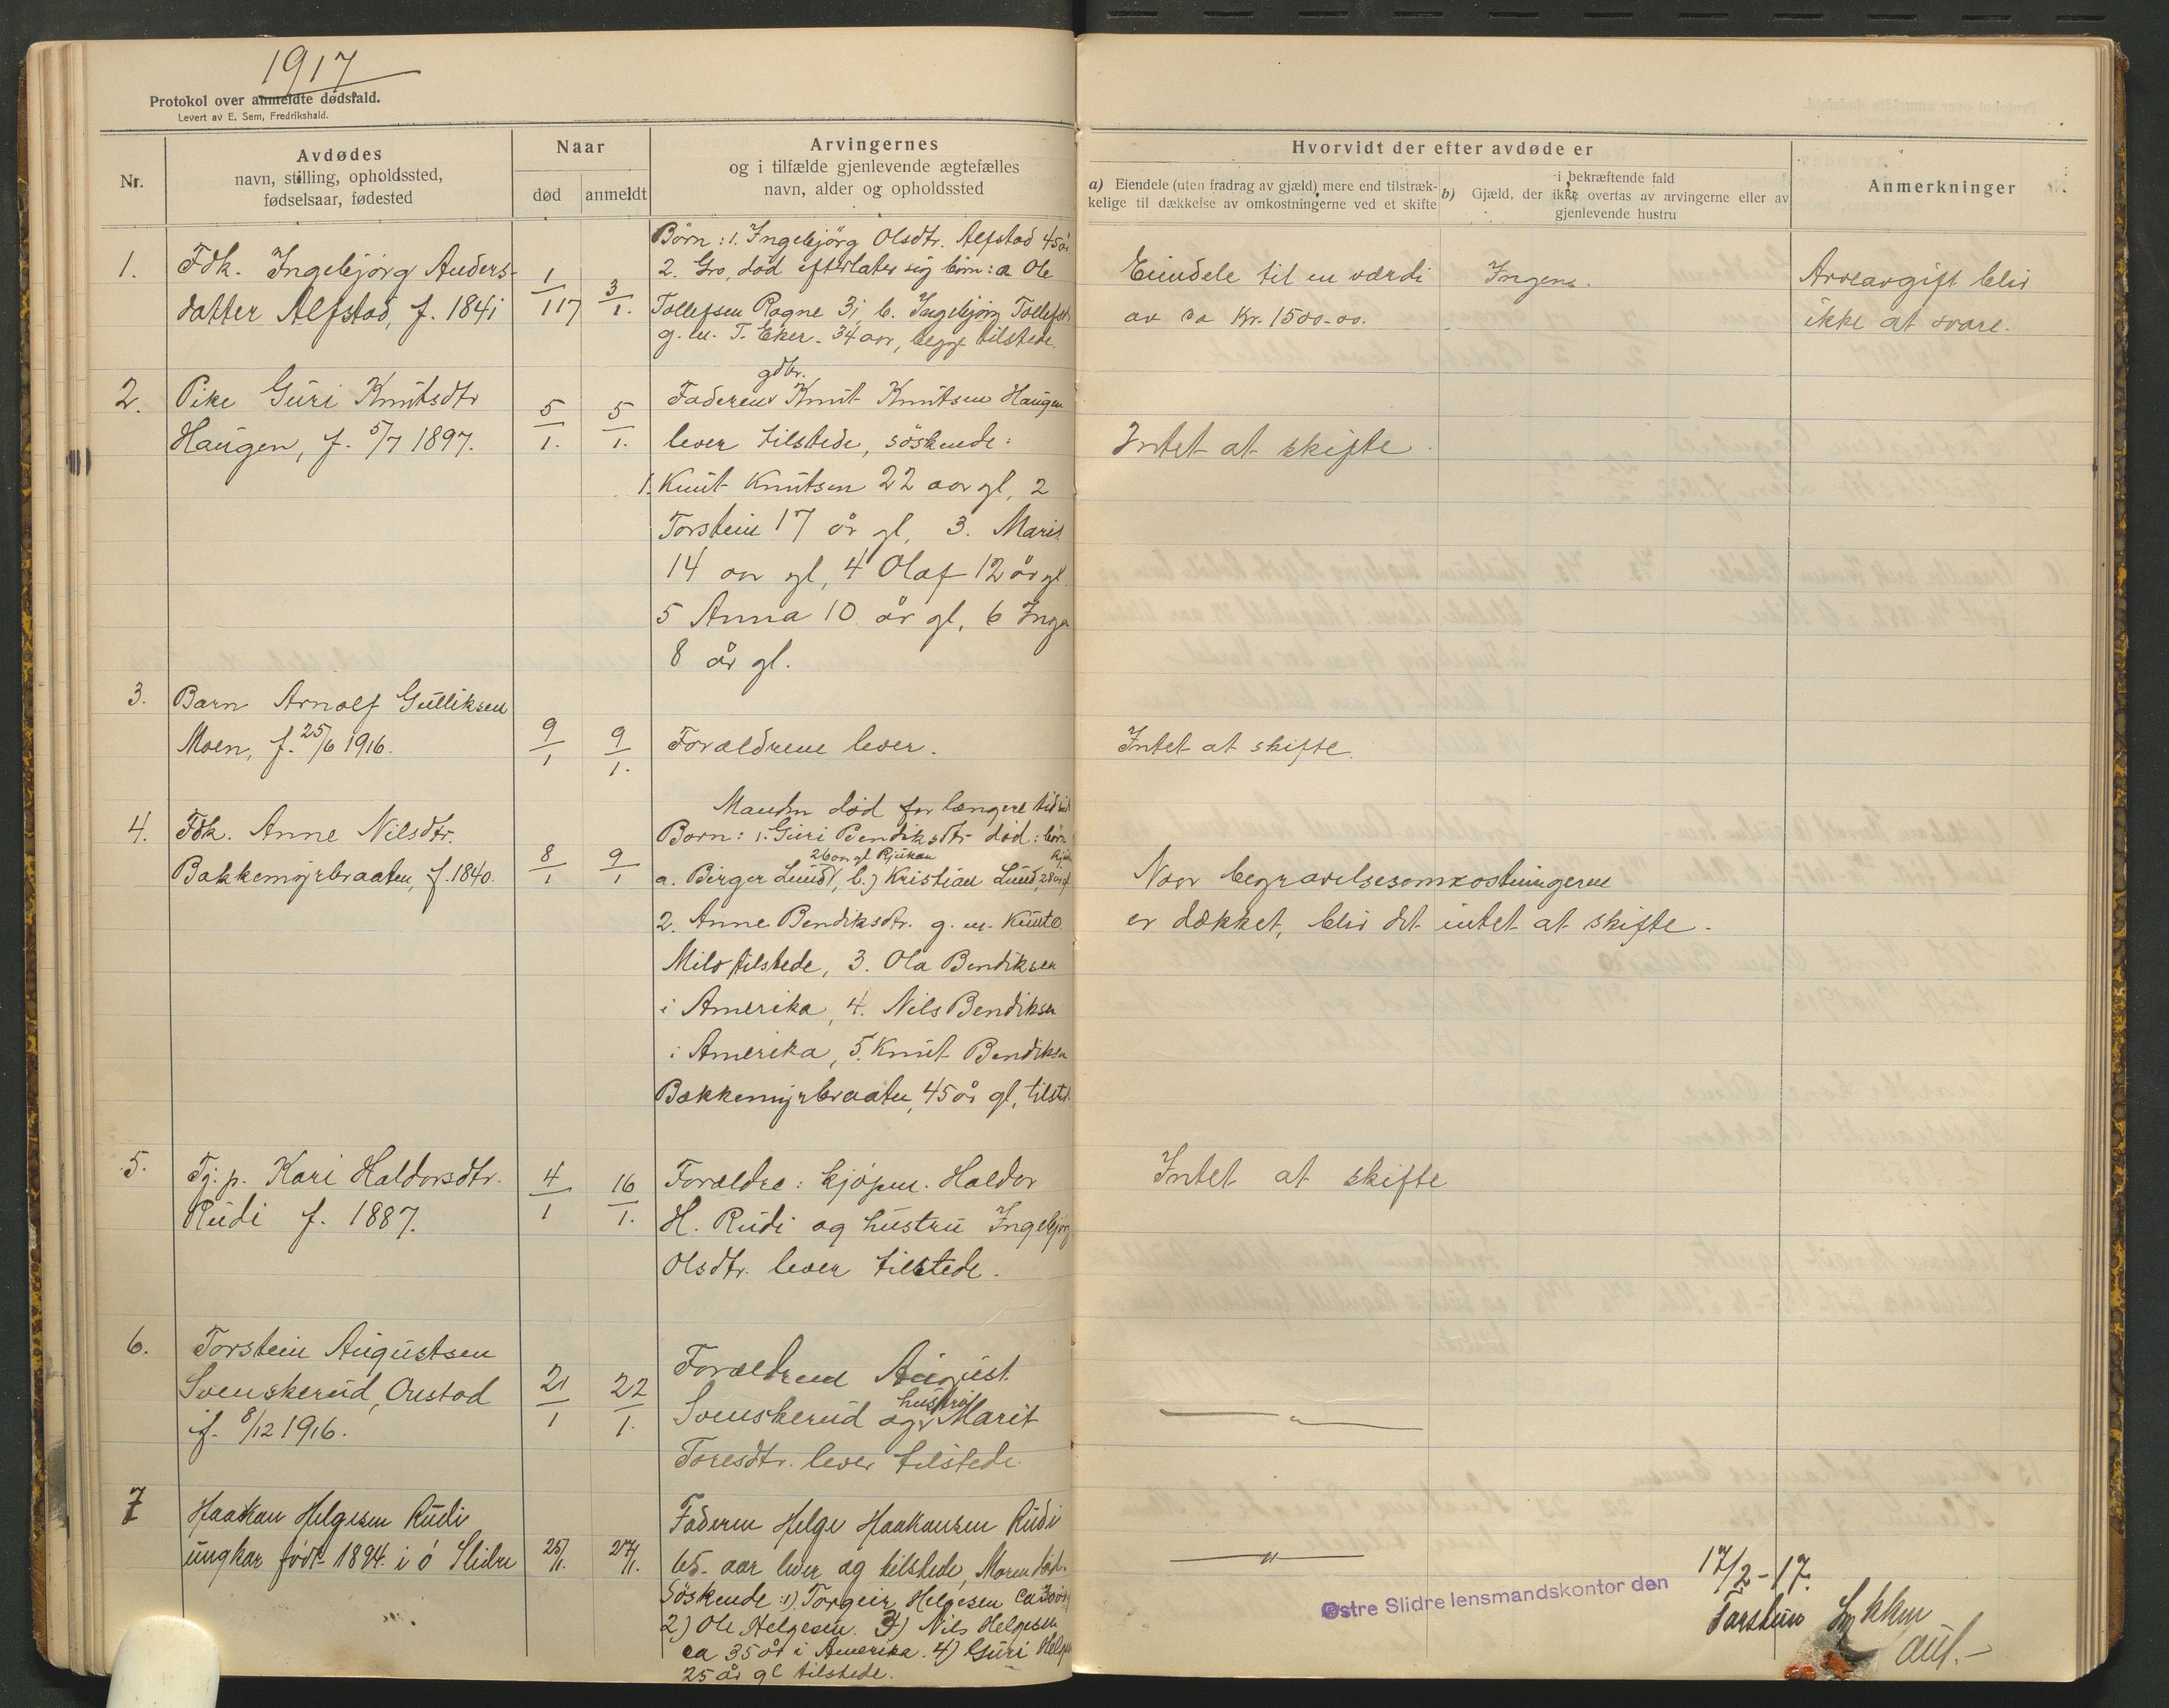 1917
Protokol over anmeldte dødsfald.
Levert av E. Sem, Fredrikshald.
Nr.
Avdødes
navn, stilling, opholdssted,
fødselsaar, fødested
Naar
død
anmeldt
Arvingernes
og i tilfælde gjenlevende ægtefælles
navn, alder og opholdssted
Hvorvidt der efter avdøde er
a) Eiendele (uten fradrag av gjæld) mere end tilstræk-
kelige til dækkelse av omkostningerne ved et skifte
i bekræftende fald
b) Gjæld, der ikke overtas av arvingerne eller av
gjenlevende hustru
Anmerkninger
1.
Fdk. Ingebjørg Anders-
datter Alfstad, f. 1841
1/1 17
3/1.
Børn: 1. Ingebjörg Olsdtr. Alfstad 45 år
2. Gro, død efterlater sig børn: a Ole
Tollefsen Rogne 31 b. Ingebjörg Tollefsdt.
g. m. T. Eker. 34 aar, begge tilstede.
Eiendele til en værdi
av ca Kr. 1500.00.
Ingen.
Arveavgift blir
ikke at svare.
2.
Pike Guri Knutsdtr
Haugen, f. 5/7 1897.
5/1.
5/1.
gdbr.
Faderen Knut Knutsen Haugen
lever tilstede, söskende:
1. Knut Knutsen 22 aar gl, 2
Torstein 17 år gl, 3. Marit
14 aar gl, 4 Olaf 12 år gl.
5 Anna 10 år gl, 6 Inga
8 år gl.
Intet at skifte.
3.
Barn Arnolf Gulliksen
Moen, f. 25/6 1916.
9/1
9/1.
Forældrene lever.
Intet at skifte.
4.
Fdk. Anne Nilsdtr.
Bakkemyrbraaten, f. 1840.
8/1
9/1
Manden död for længere tid
Barn: 1. Guri Bendiksdtr död: børn
26 aar gl Rjukan
a. Birger Lund, b.) Kristian Lund, 28 år gl
2. Anne Bendiksdtr. g. m. Knut O.
Milo tilstede, 3. Ola Bendiksen
i Amerika, 4. Nils Bendiksen
i Amerika, 5. Knut Bendiksen
Bakkemyrbraaten, 45 år gl, tilsted.
Naar begravelsesomkostningerne
er dækket, blir det intet at skifte.
5.
Tj. p. Kari Haldorsdtr.
Rudi f. 1887.
4/1
16/1.
Forældre: kjøpm. Haldor
H. Rudi og hustru Ingebjörg
Olsdtr. lever tilstede.
Intet at skifte
6.
Torstein Augustsen
Svenskerud, Onstad
f. 8/12 1916.
21/1
22/1.
Forældrene August
hustru
Svenskerud og Marit
Toresdtr. lever tilstede.
— " —
7
Haakan Helgesen Rudi
ungkar født 1894. i ö Slidre
25/1.
27/1.
Faderen Helge Haakansen Rudi
65. aar lever og tilstede, Moren död.
Söskende: 1) Torgeir Helgesen ca 30 år
2) Ole Helgesen. 3) Nils Helgesen
ca 35 år i Amerika. 4) Guri Helges
25 år gl tilstede.
— " —
Østre Slidre lensmandskontor den 17/2-17.
Torstein Lykken
aut.-